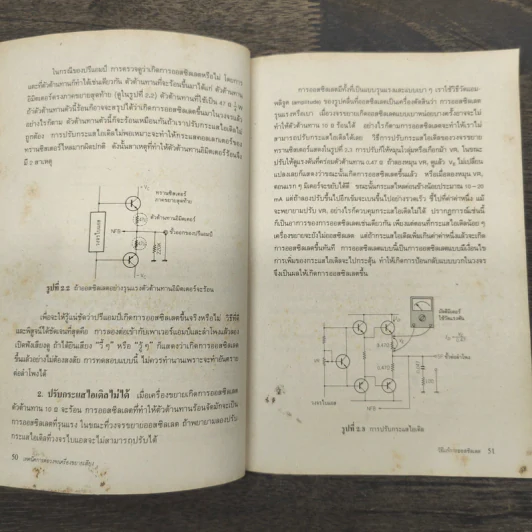 ในกรณีของปรีแอมป์ การตรวจดูว่าเกิดการออสซิลเลตหรือไม่ โดยการ
แตะที่ตัวต้านทานก็ทำได้เช่นเดียวกัน ตัวต้านทานที่จะร้อนขึ้นมาได้แก่ ตัวต้านทาน
อิมิตเตอร์ตรงภาคขยายสุดท้าย (ดูในรูปที่ 2.2) ตัวต้านทานที่ใช้เป็น 47 Ω
ถ้าตัวต้านทานตัวนี้ร้อนก็อาจจะสรุปได้ว่าเกิดการออสซิลเลตขึ้นในวงจรแล้ว
อย่างไรก็ตาม ตัวต้านทานตัวนี้ก็จะร้อนเหมือนกันถ้าเราปรับกระแสไอเดิลไม่
ถูกต้อง การปรับกระแสไอเดิลไม่พอเหมาะจะทำให้กระแสคอลเลกเตอร์ของ
ทรานซิสเตอร์ไหลมากผิดปกติ ดังนั้นสาเหตุที่ทำให้ตัวต้านทานอิมิตเตอร์ร้อนจึง
มี 2 สาเหตุ
ทรานซิสเตอร์
ภาคขยายสุดท้าย
ตัวต้านทานอิมิตเตอร์
NFB
ขั้วออกของปรีแอมป์
220K
วงจรไบแอส
รูปที่ 2.2 ถ้าออสซิลเลตอย่างรุนแรงตัวต้านทานอิมิตเตอร์จะร้อน
เพื่อจะให้รู้แน่ชัดว่าปรีแอมป์เกิดการออสซิลเลตขึ้นจริงหรือไม่ วิธีที่ดี
และพิสูจน์ได้ชัดเจนที่สุดคือ การลองต่อเข้ากับเพาเวอร์แอมป์และลำโพงแล้วลอง
เปิดฟังเสียงดู ถ้าได้ยินเสียง "วี้ ๆ" หรือ "วู้ ๆ" ก็แสดงว่าเกิดการออสซิลเลต
ขึ้นแล้วอย่างไม่ต้องสงสัย การทดสอบแบบนี้ ไม่ควรทำนานเพราะจะทำอันตราย
ต่อลำโพงได้
2. ปรับกระแสไอเดิลไม่ได้ เมื่อเครื่องขยายเกิดการออสซิลเลต
ตัวต้านทาน 10 Ω จะร้อน การออสซิลเลตที่ทำให้ตัวต้านทานร้อนจัดมักจะเป็น
การออสซิลเลตที่รุนแรง ในขณะที่วงจรขยายออสซิลเลต ถ้าพยายามลองปรับ
กระแสไอเดิลที่วงจรไบแอสจะไม่สามารถปรับได้
50 เทคนิคการต่อวงจรเครื่องขยายเสียง
การออสซิลเลตมีทั้งที่เป็นแบบรุนแรงและแบบเบา ๆ เราใช้วิธีวัดแอม-
พลิจูด (amplitude) ของรูปคลื่นที่ออสซิลเลตเป็นเครื่องตัดสินว่า การออสซิลเลต
รุนแรงหรือเบา เมื่อวงจรขยายเกิดออสซิลเลตแบบเบาหน่อยบางครั้งอาจจะไม่
ทำให้ตัวต้านทาน 10 Ω ร้อนก็ได้ อย่างไรก็ตามการออสซิลเลตจะทำให้เราไม่
สามารถปรับกระแสไอเดิลได้เลย วิธีการปรับกระแสไอเดิลของวงจรขยาย
ทรานซิสเตอร์แสดงในรูป 2.3 การปรับก็ให้หมุนโวลุ่มหรือเกือกม้า VR₁ ในขณะ
ปรับให้ดูแรงดันที่คร่อมตัวต้านทาน 0.47 Ω ถ้าลองหมุน VR₁ ดูแล้ว V₀ ไม่เปลี่ยน
แปลงเลยก็แสดงว่าขณะนั้นเกิดการออสซิลเลตขึ้นแล้ว หรือเมื่อลองหมุน VR₁
ตอนแรก ๆ มิเตอร์จะขยับได้ดี ขณะนั้นกระแสไหลค่อนข้างน้อยประมาณ 10–20
mA แต่ถ้าลองปรับขึ้นไปอีกเข็มจะเบนขึ้นไปอย่างรวดเร็ว ชี้ไปที่ค่าค่าหนึ่ง แม้
จะพยายามปรับ VR₁ อย่างไรก็ควบคุมกระแสไอเดิลไม่ได้ ปรากฏการณ์เช่นนี้
ก็เป็นอาการของการออสซิลเลตเช่นเดียวกัน เพียงแต่ตอนที่กระแสไอเดิลน้อย ๆ
เครื่องขยายจะยังไม่ออสซิลเลต แต่ถ้ากระแสไอเดิลเพิ่มเกินค่าค่าหนึ่งแล้วจะเกิด
การออสซิลเลตขึ้นทันที การออสซิลเลตแบบนี้เป็นการออสซิลเลตแบบมีเงื่อนไข
การเพิ่มของกระแสไอเดิลจะไปกระตุ้น ทำให้เกิดการป้อนกลับแบบบวกในวงจร
จึงเป็นผลให้เกิดการออสซิลเลตขึ้น
มัลติมิเตอร์
ใช้วัดแรงดัน
0.47Ω
0.47Ω
ขั้วต่อลำโพง
10Ω
วงจรไบแอส
NFB
รูปที่ 2.3 การปรับกระแสไอเดิล
วิธีแก้การออสซิลเลต 51